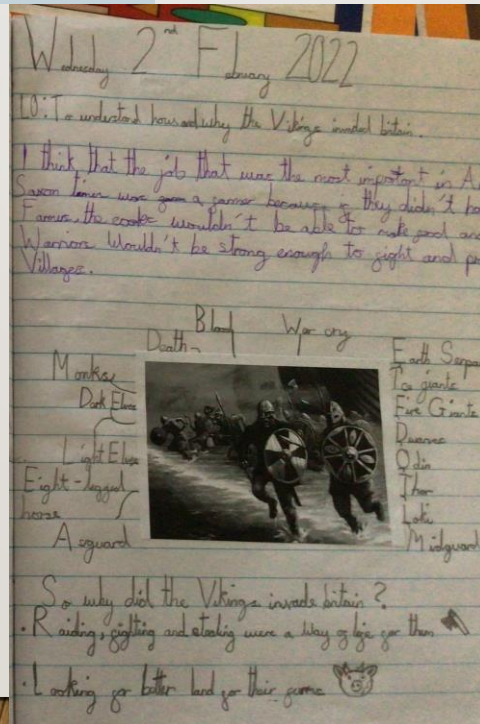 Wednesday 2nd February 2022
LO: To understand how and why the Vikings invaded britain.
I think that the job that was the most important in
Saxon times was a farmer because if they didn't
Farmers the cooks wouldn't be able to make food and
Warriors Wouldn't be strong enough to fight and
Villages.
Blood War cry
Death
Monks
Dark Elves
Light Elves
Eight-legged
horse
Asguard
Earth
Ice giants
Fire Giants
Dwarves
Odin
Thor
Loki
Midguard
So why did the Vikings invade britain?
. Raiding, fighting and stealing were a way of life for them
. Looking for better land for their farms